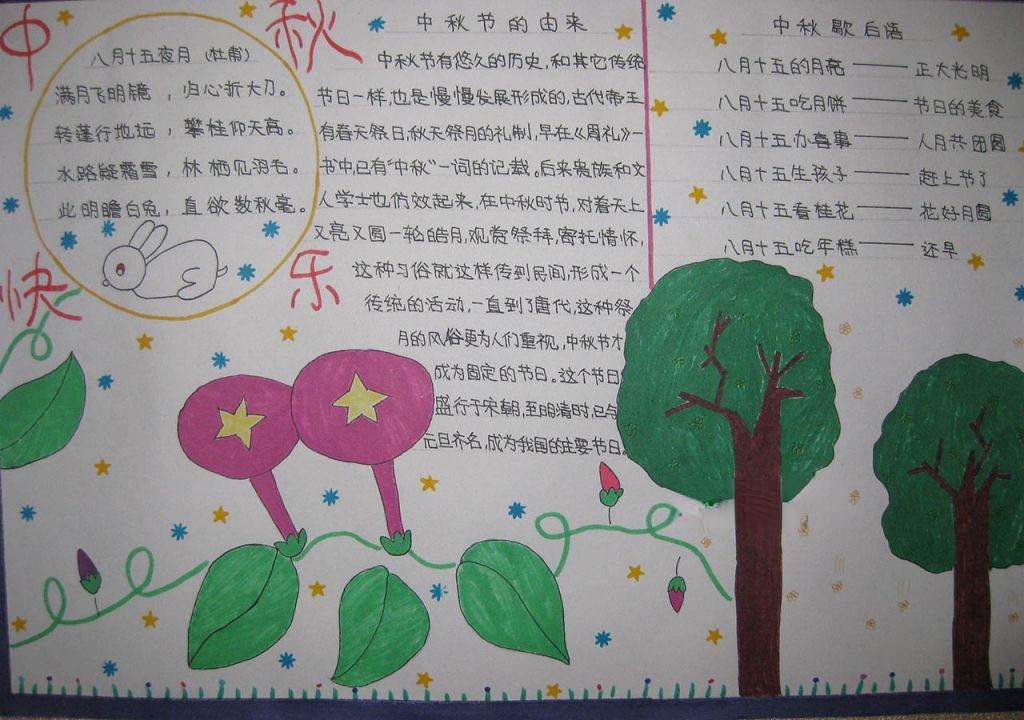 中秋
快乐
八月十五夜月 (杜甫)
满月飞明镜，归心折大刀。
转蓬行地远，攀桂仰天高。
水路疑霜雪，林栖见羽毛。
此明瞻白兔，直欲数秋毫。
中秋节的由来
中秋节有悠久的历史,和其它传统
节日一样,也是慢慢发展形成的,古代帝王
有春天祭日,秋天祭月的礼制,早在《周礼》一
书中,已有“中秋”一词的记载。后来贵族和文
人学士也仿效起来,在中秋时节,对着天上
又亮又圆一轮皓月,观赏祭拜,寄托情怀,
这种习俗就这样传到民间,形成一个
传统的活动,一直到了唐代,这种祭
月的风俗更为人们重视,中秋节才
成为固定的节日。这个节日
盛行于宋朝,至明清时,已与
元旦齐名,成为我国的主要节日。
中秋歇后语
八月十五的月亮——正大光明
八月十五吃月饼——节日的美食
八月十五办喜事——人月共团圆
八月十五生孩子——赶上节了
八月十五看桂花——花好月圆
八月十五吃年糕——还早